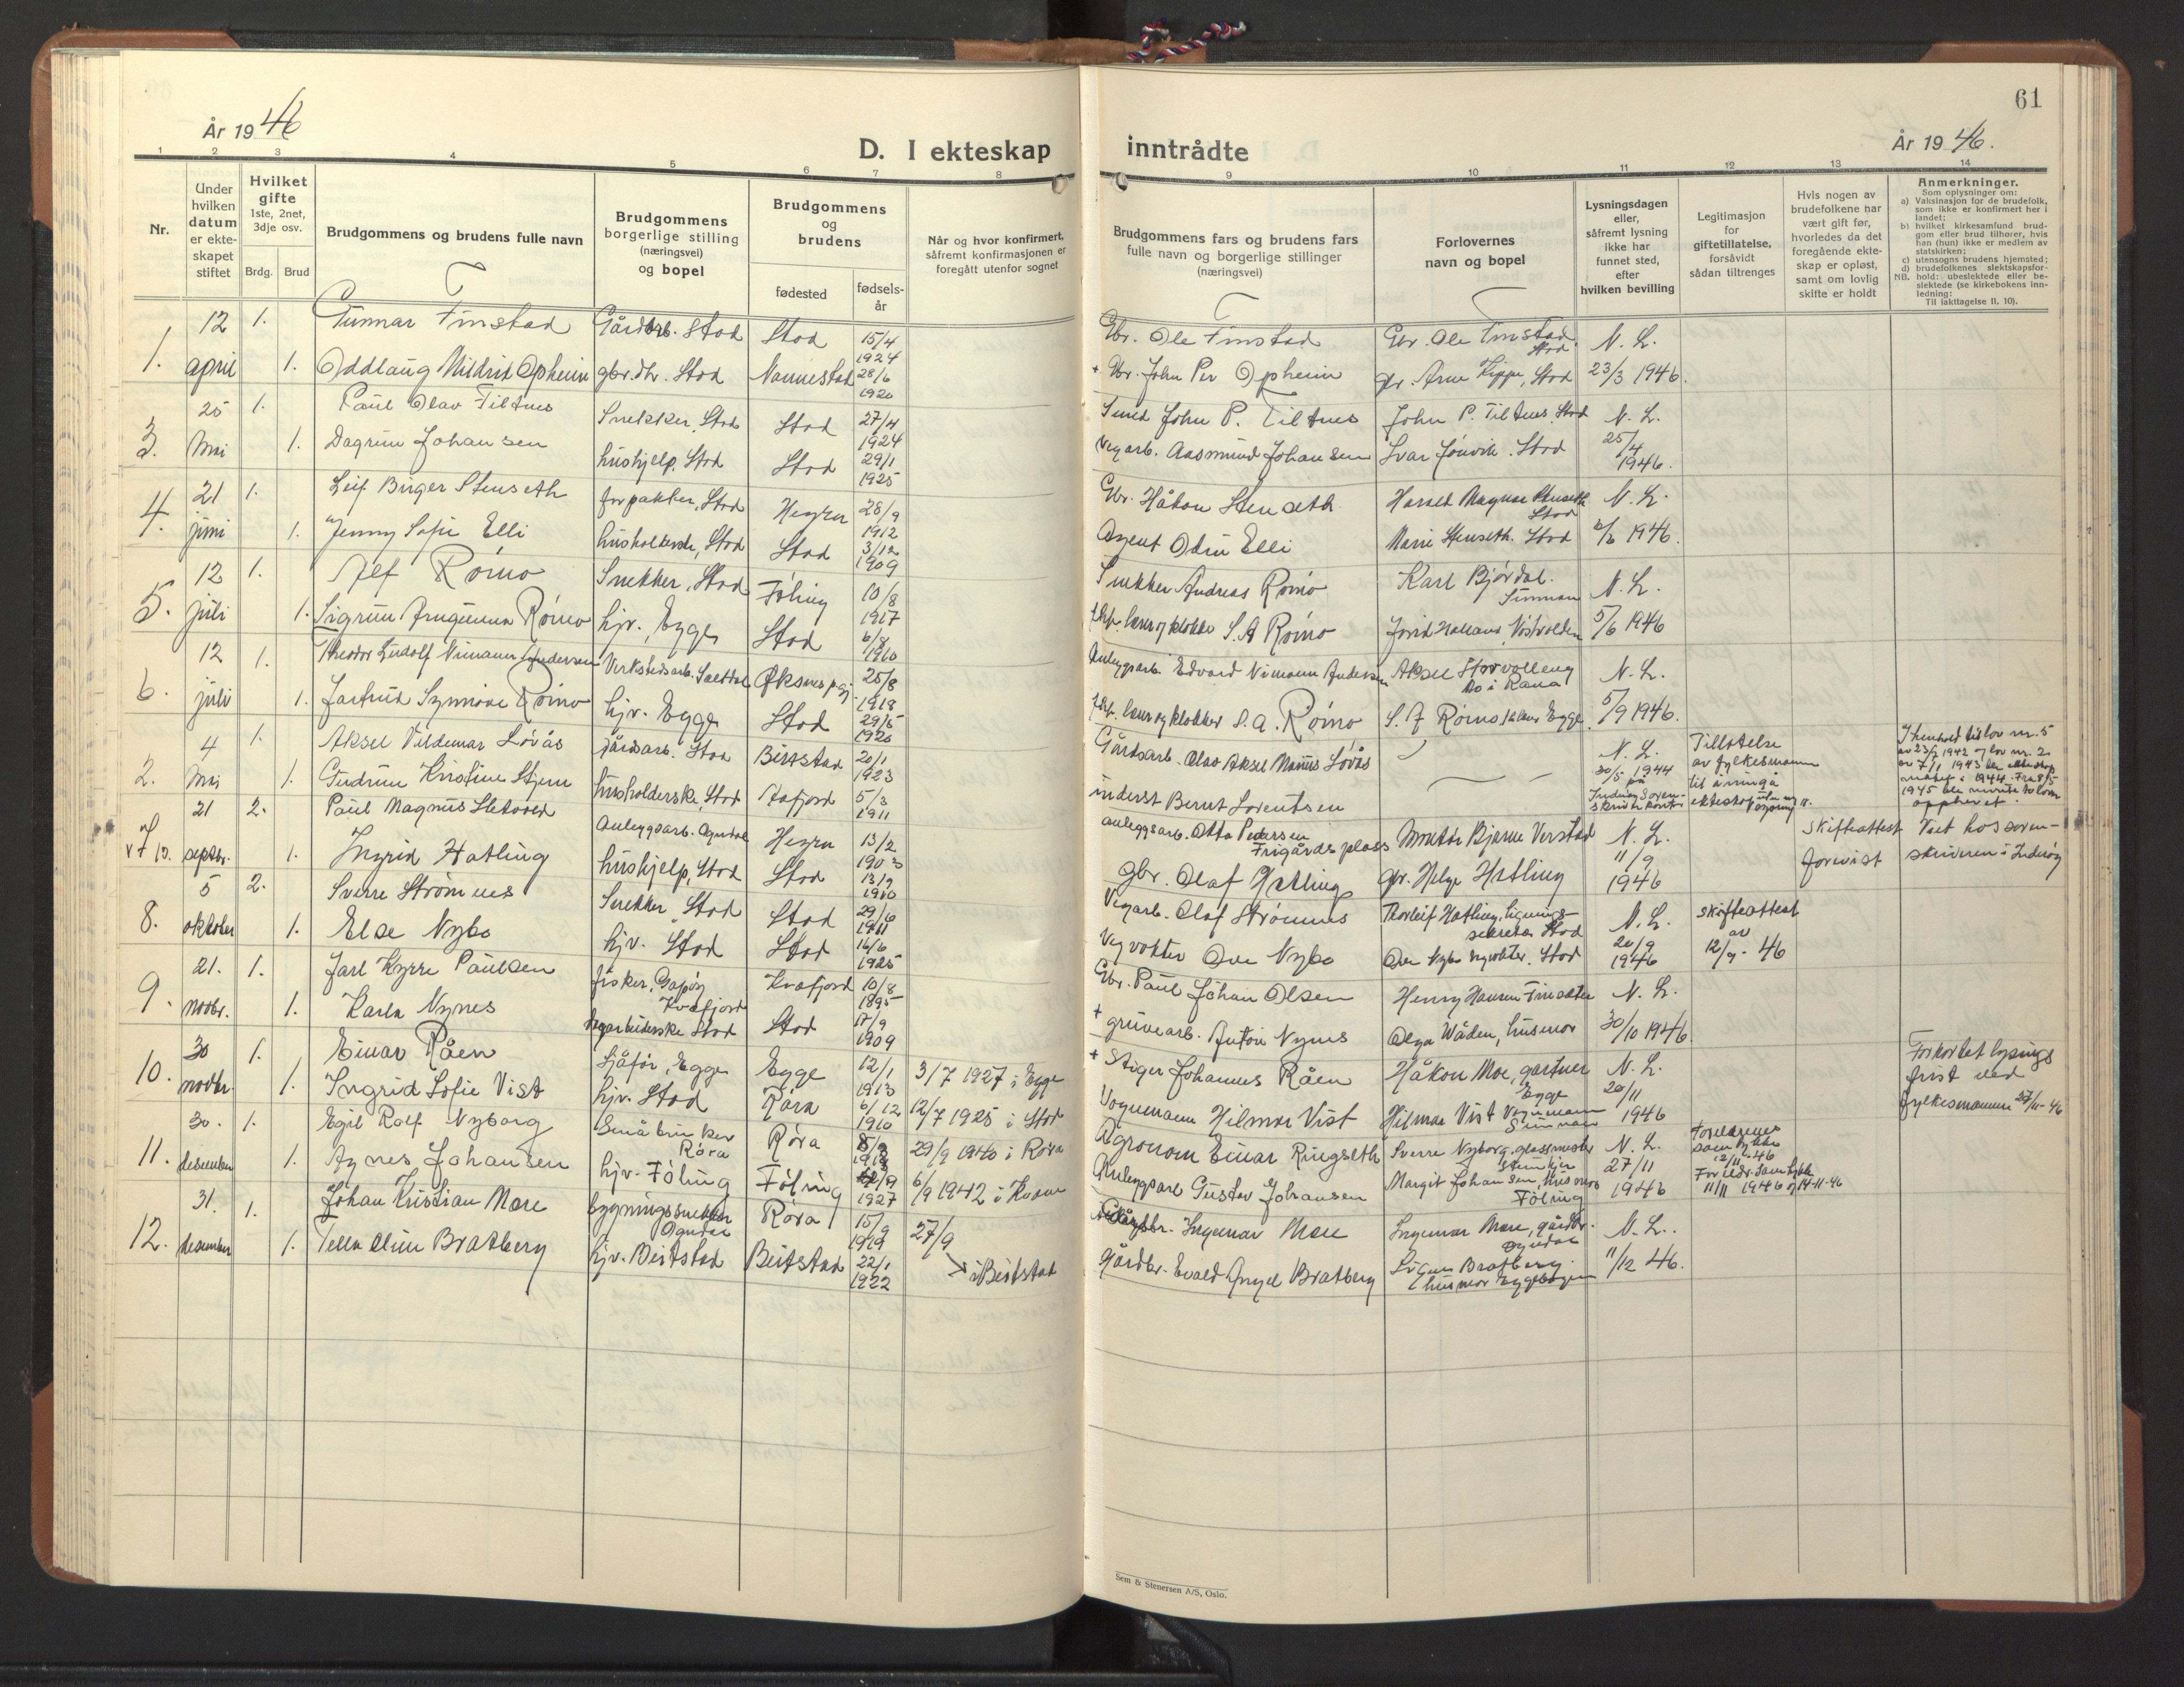 61
År 1946
D. I ekteskap inntrådte
År 1946.
1 2 3 4 5 6 7 8 9 10 11 12 13 14
Nr.
Under
hvilken
datum
er ekte-
skapet
stiftet
Hvilket
gifte
1ste, 2net,
3dje osv.
Brdg. Brud
Brudgommens og brudens fulle navn
Brudgommens
borgerlige stilling
(næringsvei)
og bopel
Brudgommens
og
brudens
fødested
fødsels-
år
Når og hvor konfirmert,
såfremt konfirmasjonen er
foregått utenfor sognet
Brudgommens fars og brudens fars
fulle navn og borgerlige stillinger
(næringsvei)
Forlovernes
navn og bopel
Lysningsdagen
eller,
såfremt lysning
ikke har
funnet sted,
efter
hvilken bevilling
Legitimasjon
for
giftetillatelse,
forsåvidt
sådan tiltrenges
Hvis nogen av
brudefolkene har
vært gift før,
hvorledes da det
foregående ekte-
skap er opløst,
samt om lovlig
skifte er holdt
Anmerkninger.
Som oplysninger om:
a) Vaksinasjon for de brudefolk,
som ikke er konfirmert her i
landet;
b) hvilket kirkesamfund brud-
gom eller brud tilhører, hvis
han (hun) ikke er medlem av
statskirken;
c) utensogns brudens hjemsted;
d) brudefolkenes slektskapsfor-
hold: ubeslektede eller be-
slektede (se kirkebokens inn-
ledning:
NB.
Til iakttagelse II. 10).
1. 12 april 1. Gunnar Finstad Gårdbr. Stod Stod 15/4 1924 Gbr. Ole Finstad Gbr. Ole Finstad, Stod N. L.
1. Oddlaug Mildrid Opheim gbr.dtr. Stod Nannestad 28/6 1920 + Gbr. John Per Opheim gbr. Arne Kippe, Stod 23/3 1946.
3. 25 Mai 1. Paul Olav Tiltnes Snekker, Stod Stod 27/4 1924 Smed John P. Tiltnes John P. Tiltnes, Stod N. L.
1. Dagrun Johansen hushjelp, Stod Stod 29/1 1925 Vegarb. Aasmund Johansen Ivar Jønvik. Stod 25/4 1946.
4. 21 juni 1. Leif Birger Stenseth forpakter, Stod Hegra 28/9 1912 Gbr. Håkon Stenseth Harald Magnar Stenseth Stod N. L.
1. Jenny Sofie Elli husholderske, Stod Stod 3/12 1909 Agent Odin Elli Marie Stenseth. Stod 1946.
5. 12 juli 1. Alf Rømo Snekker, Stod Følling 10/8 1917 Snekker Andreas Rømo Karl Bjørdal. N. L.
1. Sigrun Arngunn Rømo hjv., Egge Stod 6/8 1910 lærer og klokker S. A Rømo 5/6 1946
6. 12 juli 1. Theodor Ludolf Nimann Andersen Verkstedsarb. Saltdal Øksnes 25/8 1918 Anleggsarb. Edvard Nimann Andersen Aksel Storvolleng Mo i Rana N. L.
1. Jartrud Synnøve Rømo hjv. Egge Stod 29/5 1920 lærer og klokker S. A. Rømo S. A Rømo, Egge 5/9 1946.
2. 4 Mai 1. Aksel Valdemar Løvås gårdsarb. Stod Beitstad 20/1 1923 Gårdsarb. Olav Aksel Løvås N. L. 30/5 1944 på Inderøy Soren-skriverkontor
Tillatelse av fylkesmann til å inngå ekteskap uten
I henhold til lov nr. 5 av 23/ 1942 og lov nr. 2 av 7/1 1943 ble ekteskap inngått i 1944. Fra 8/5-1945 ble opphevet.
1. Gudrun Kristine Stjern husholderske, Stod Åfjord 5/3 1911 inderst Bernt Lorentsen
7. 21 septbr. 2. Paul Magnus Sletvold Anleggsarb. Ogndal Hegra 13/2 1903 anleggsarb. Otto Pedersen Frigårdsplass Bjarne Verstad N. L. Skifteattest forevist Viet hos soren-skriveren i Inderøy
1. Ingrid Hatling hushjelp, Stod Stod 13/9 1910 gbr. Olaf Hatling gbr. Helge Hatling 11/9 1946
8. 5 oktober 2. Sverre Strømnes Snekker, Stod Stod 29/6 1911 Vegarb. Olaf Strømnes Thorleif Hatling, lignings-sekretær Stod N. L. skifteattest av 12/9-46
1. Else Nybo hjv. Stod Stod 16/6 1925 Vegvokter Ove Nybo Ove Nybo vegvokter. Stod 20/9 1946
9. 21. novbr. 1. Jarl Kyrre Paulsen fisker, Gapøy Kvæfjord Kvæfjord 10/8 1895 Gbr. Paul Johan Olsen Henry Hansen N. L.
1. Karla Nynes Stod Stod 17/9 1909 + gruvearb. Anton Nynes Olga Wåden, husmor 30/10 1946.
10. 30 novbr 1. Einar Råen Sjåfør, Egge Egge 12/1 1913 3/7 1927 i Egge + Stiger Johannes Råen Håkon Moe, gartner Egge N. L. Forkortet lysings frist ved fylkesmannen 27/11-46
1. Ingrid Sofie Vist hjv. Stod Røra 6/12 1910 12/7 1925 i Stod Vognmann Hilmar Vist Hilmar Vist Vognmann 20/11 1946
11. 30. desember 1. Egil Rolf Nyborg Småbruker Røra Røra 1918 29/9 1940 i Røra Agronom Einar Ringseth Sverre Nyborg, glassmester Steinkjer N. L. Foreldrenes samtykke 12/11-46
1. Agnes Johansen hjv. Følling Følling 1927 6/9 1942 i Kvam Anleggsarb Gustav Johansen Margit Johansen, husmor Følling 27/11 1946 Foreldr. samtykke 11/11 1946 og 14-11-46
12. 31. desember 1. Johan Kristian Mære bygningssnekker Ogndal Røra 15/9 1919 27/9 Gårdbr. Ingemar Mære Ingemar Mære, gårdbr. Ogndal N. L.
1. Tella Alise Bratberg hjv. Beitstad Beitstad 22/1 1922 i Beitstad Gårdbr. Evald Angel Bratberg Bratberg husmor 11/12 46.
Sem & Stenersen A/S, Oslo.